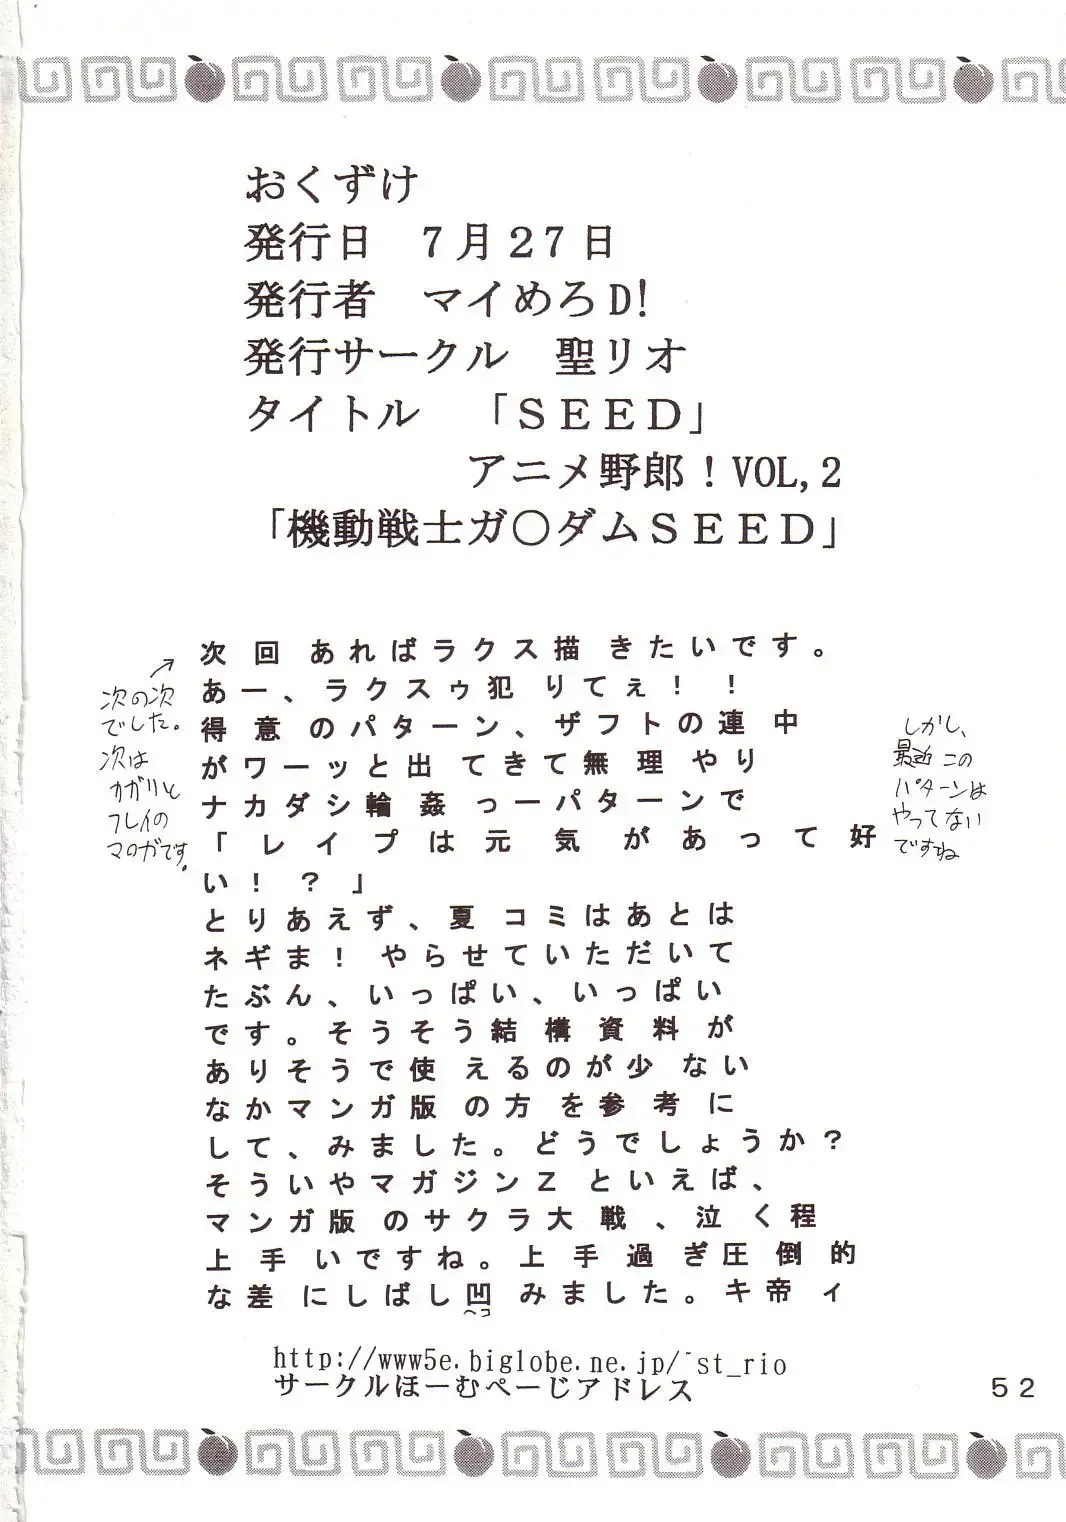 おくずけ
発行日　７月２７日
発行者　マイめろD!
発行サークル　聖リオ
タイトル　「ＳＥＥＤ」
アニメ野郎！VOL,2
「機動戦士ガ〇ダムＳＥＥＤ」
次回あればラクス描きたいです。
あー、ラクスゥ犯りてぇ！！
得意のパターン、ザフトの連中
がワーッと出てきて無理やり
ナカダシ輪姦っーパターンで
「レイプは元気があって好
い！？」
とりあえず、夏コミはあとは
ネギま！やらせていただいて
たぶん、いっぱい、いっぱい
です。そうそう結構資料が
ありそうで使えるのが少ない
なかマンガ版の方を参考に
して、みました。どうでしょうか？
そういやマガジンＺといえば、
マンガ版のサクラ大戦、泣く程
上手いですね。上手過ぎ圧倒的
な差にしばし凹みました。キ帝ィ
ヘコ
→
次の次
でした。
次は
カガリと
フレイの
マンガです。
しかし、
最近この
パターンは
やってない
ですね
http://www5e.biglobe.ne.jp/~st_rio
サークルほーむぺーじアドレス
５２